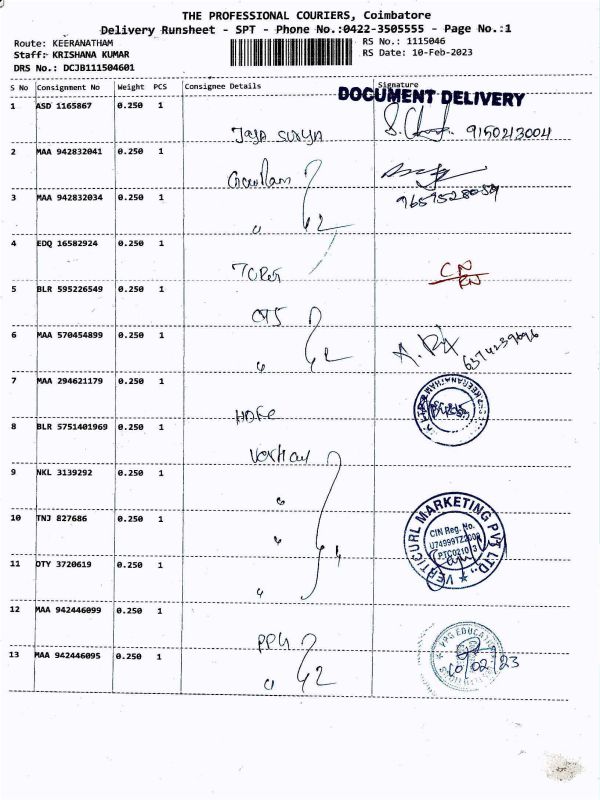 THE PROFESSIONAL COURIERS, Coimbatore
Delivery Runsheet - SPT - Phone No.:0422-3505555 - Page No.:1
Route: KEERANATHAM
RS No.: 1115046
Staff: KRISHANA KUMAR
RS Date: 10-Feb-2023
DRS No.: DCJB111504601
S No Consignment No Weight PCS Consignee Details Signature
DOCUMENT DELIVERY
1 ASD 1165867 0.250 1
9150213004
2 MAA 942832041 0.250 1
3 MAA 942832034 0.250 1
9659528059
2
4 EDQ 16582924 0.250 1
5 BLR 595226549 0.250 1
CTS
6 MAA 570454899 0.250 1
2
7 MAA 294621179 0.250 1
8 BLR 5751401969 0.250 1
9 NKL 3139292 0.250 1
10 TNJ 827686 0.250 1
VERTICURL MARKETING PVT LTD.,
CIN Reg. No.
11 OTY 3720619 0.250 1
12 MAA 942446099 0.250 1
PPG
PPG EDUCATION
13 MAA 942446095 0.250 1
2
10/02/23